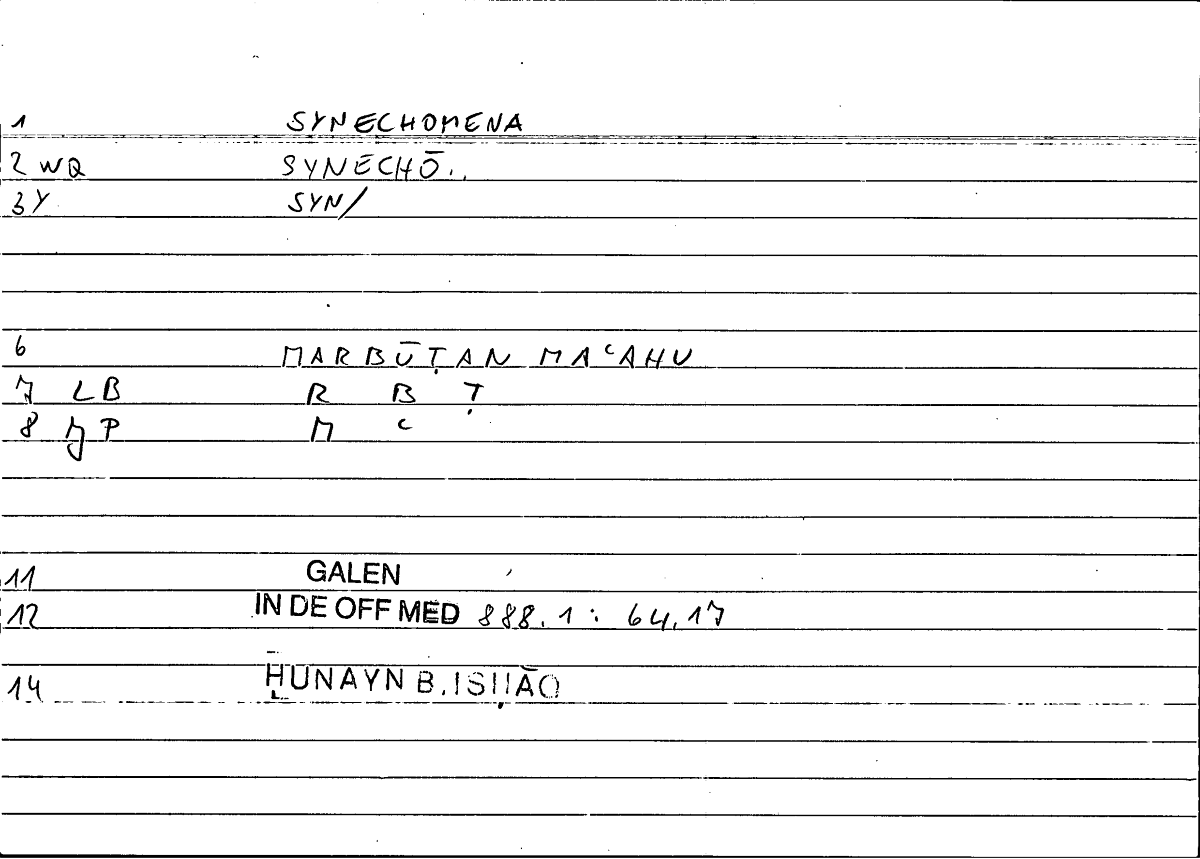 1 SYNECHOMENA
2 WQ SYNECHŌ..
3Y SYN/
6 MARBŪṬAN MAʿAHU
7 LB R B Ṭ
8 JP M ʿ
11 GALEN
12 IN DE OFF MED 888.1: 64.17
14 ḤUNAYN B. ISḤĀQ